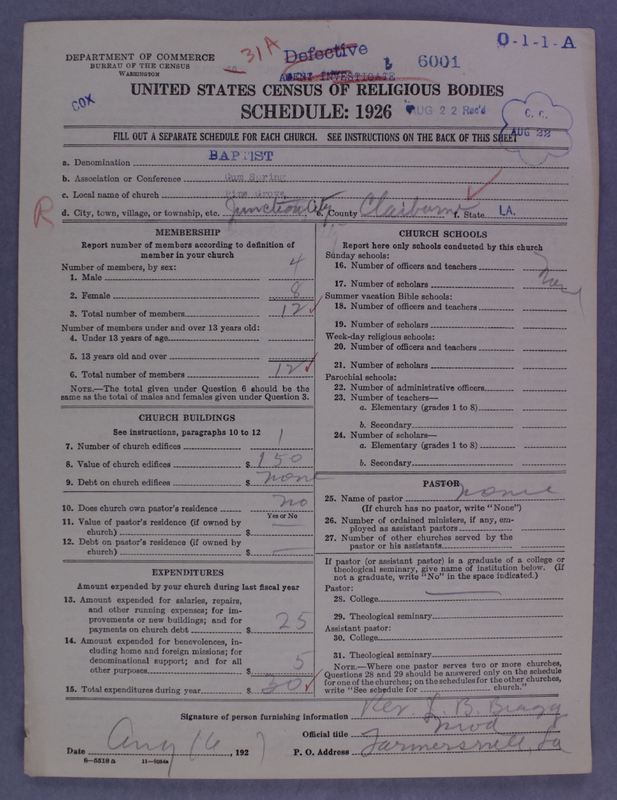 DEPARTMENT OF COMMERCE
BUREAU OF THE CENSUS
WASHINGTON
31A
Defective
AGENT INVESTIGATE
B 6001
O-1-1-A
COX
UNITED STATES CENSUS OF RELIGIOUS BODIES
SCHEDULE: 1926
AUG 22 Rec'd
C. C.
AUG 22
FILL OUT A SEPARATE SCHEDULE FOR EACH CHURCH. SEE INSTRUCTIONS ON THE BACK OF THIS SHEET
a. Denomination BAPTIST
b. Association or Conference Gum Spring
c. Local name of church Pine Grove
R
d. City, town, village, or township, etc. Junction City e. County Claiborne f. State LA.
MEMBERSHIP
Report number of members according to definition of
member in your church
Number of members, by sex:
1. Male 4
2. Female 8
3. Total number of members 12
Number of members under and over 13 years old:
4. Under 13 years of age
5. 13 years old and over
6. Total number of members 12
NOTE.—The total given under Question 6 should be the
same as the total of males and females given under Question 3.
CHURCH BUILDINGS
See instructions, paragraphs 10 to 12
7. Number of church edifices 1
8. Value of church edifices $ 150
9. Debt on church edifices $ none
10. Does church own pastor's residence no
Yes or No
11. Value of pastor's residence (if owned by
church) $
12. Debt on pastor's residence (if owned by
church) $
EXPENDITURES
Amount expended by your church during last fiscal year
13. Amount expended for salaries, repairs,
and other running expenses; for im-
provements or new buildings; and for
payments on church debt $ 25
14. Amount expended for benevolences, in-
cluding home and foreign missions; for
denominational support; and for all
other purposes $ 5
15. Total expenditures during year $ 30
CHURCH SCHOOLS
Report here only schools conducted by this church
Sunday schools:
16. Number of officers and teachers
17. Number of scholars
Summer vacation Bible schools:
18. Number of officers and teachers
19. Number of scholars
Week-day religious schools:
20. Number of officers and teachers
21. Number of scholars
Parochial schools:
22. Number of administrative officers
23. Number of teachers—
a. Elementary (grades 1 to 8)
b. Secondary
24. Number of scholars—
a. Elementary (grades 1 to 8)
b. Secondary
PASTOR
25. Name of pastor none
(If church has no pastor, write "None")
26. Number of ordained ministers, if any, em-
ployed as assistant pastors
27. Number of other churches served by the
pastor or his assistants
If pastor (or assistant pastor) is a graduate of a college or
theological seminary, give name of institution below. (If
not a graduate, write "No" in the space indicated.)
Pastor:
28. College
29. Theological seminary
Assistant pastor:
30. College
31. Theological seminary
NOTE.—Where one pastor serves two or more churches,
Questions 28 and 29 should be answered only on the schedule
for one of the churches; on the schedules for the other churches,
write "See schedule for church."
Signature of person furnishing information Rev. B. Bragg
Official title Mod
Date Aug 16, 1927 P. O. Address Farmersville, La
8-5318a 11-9054a